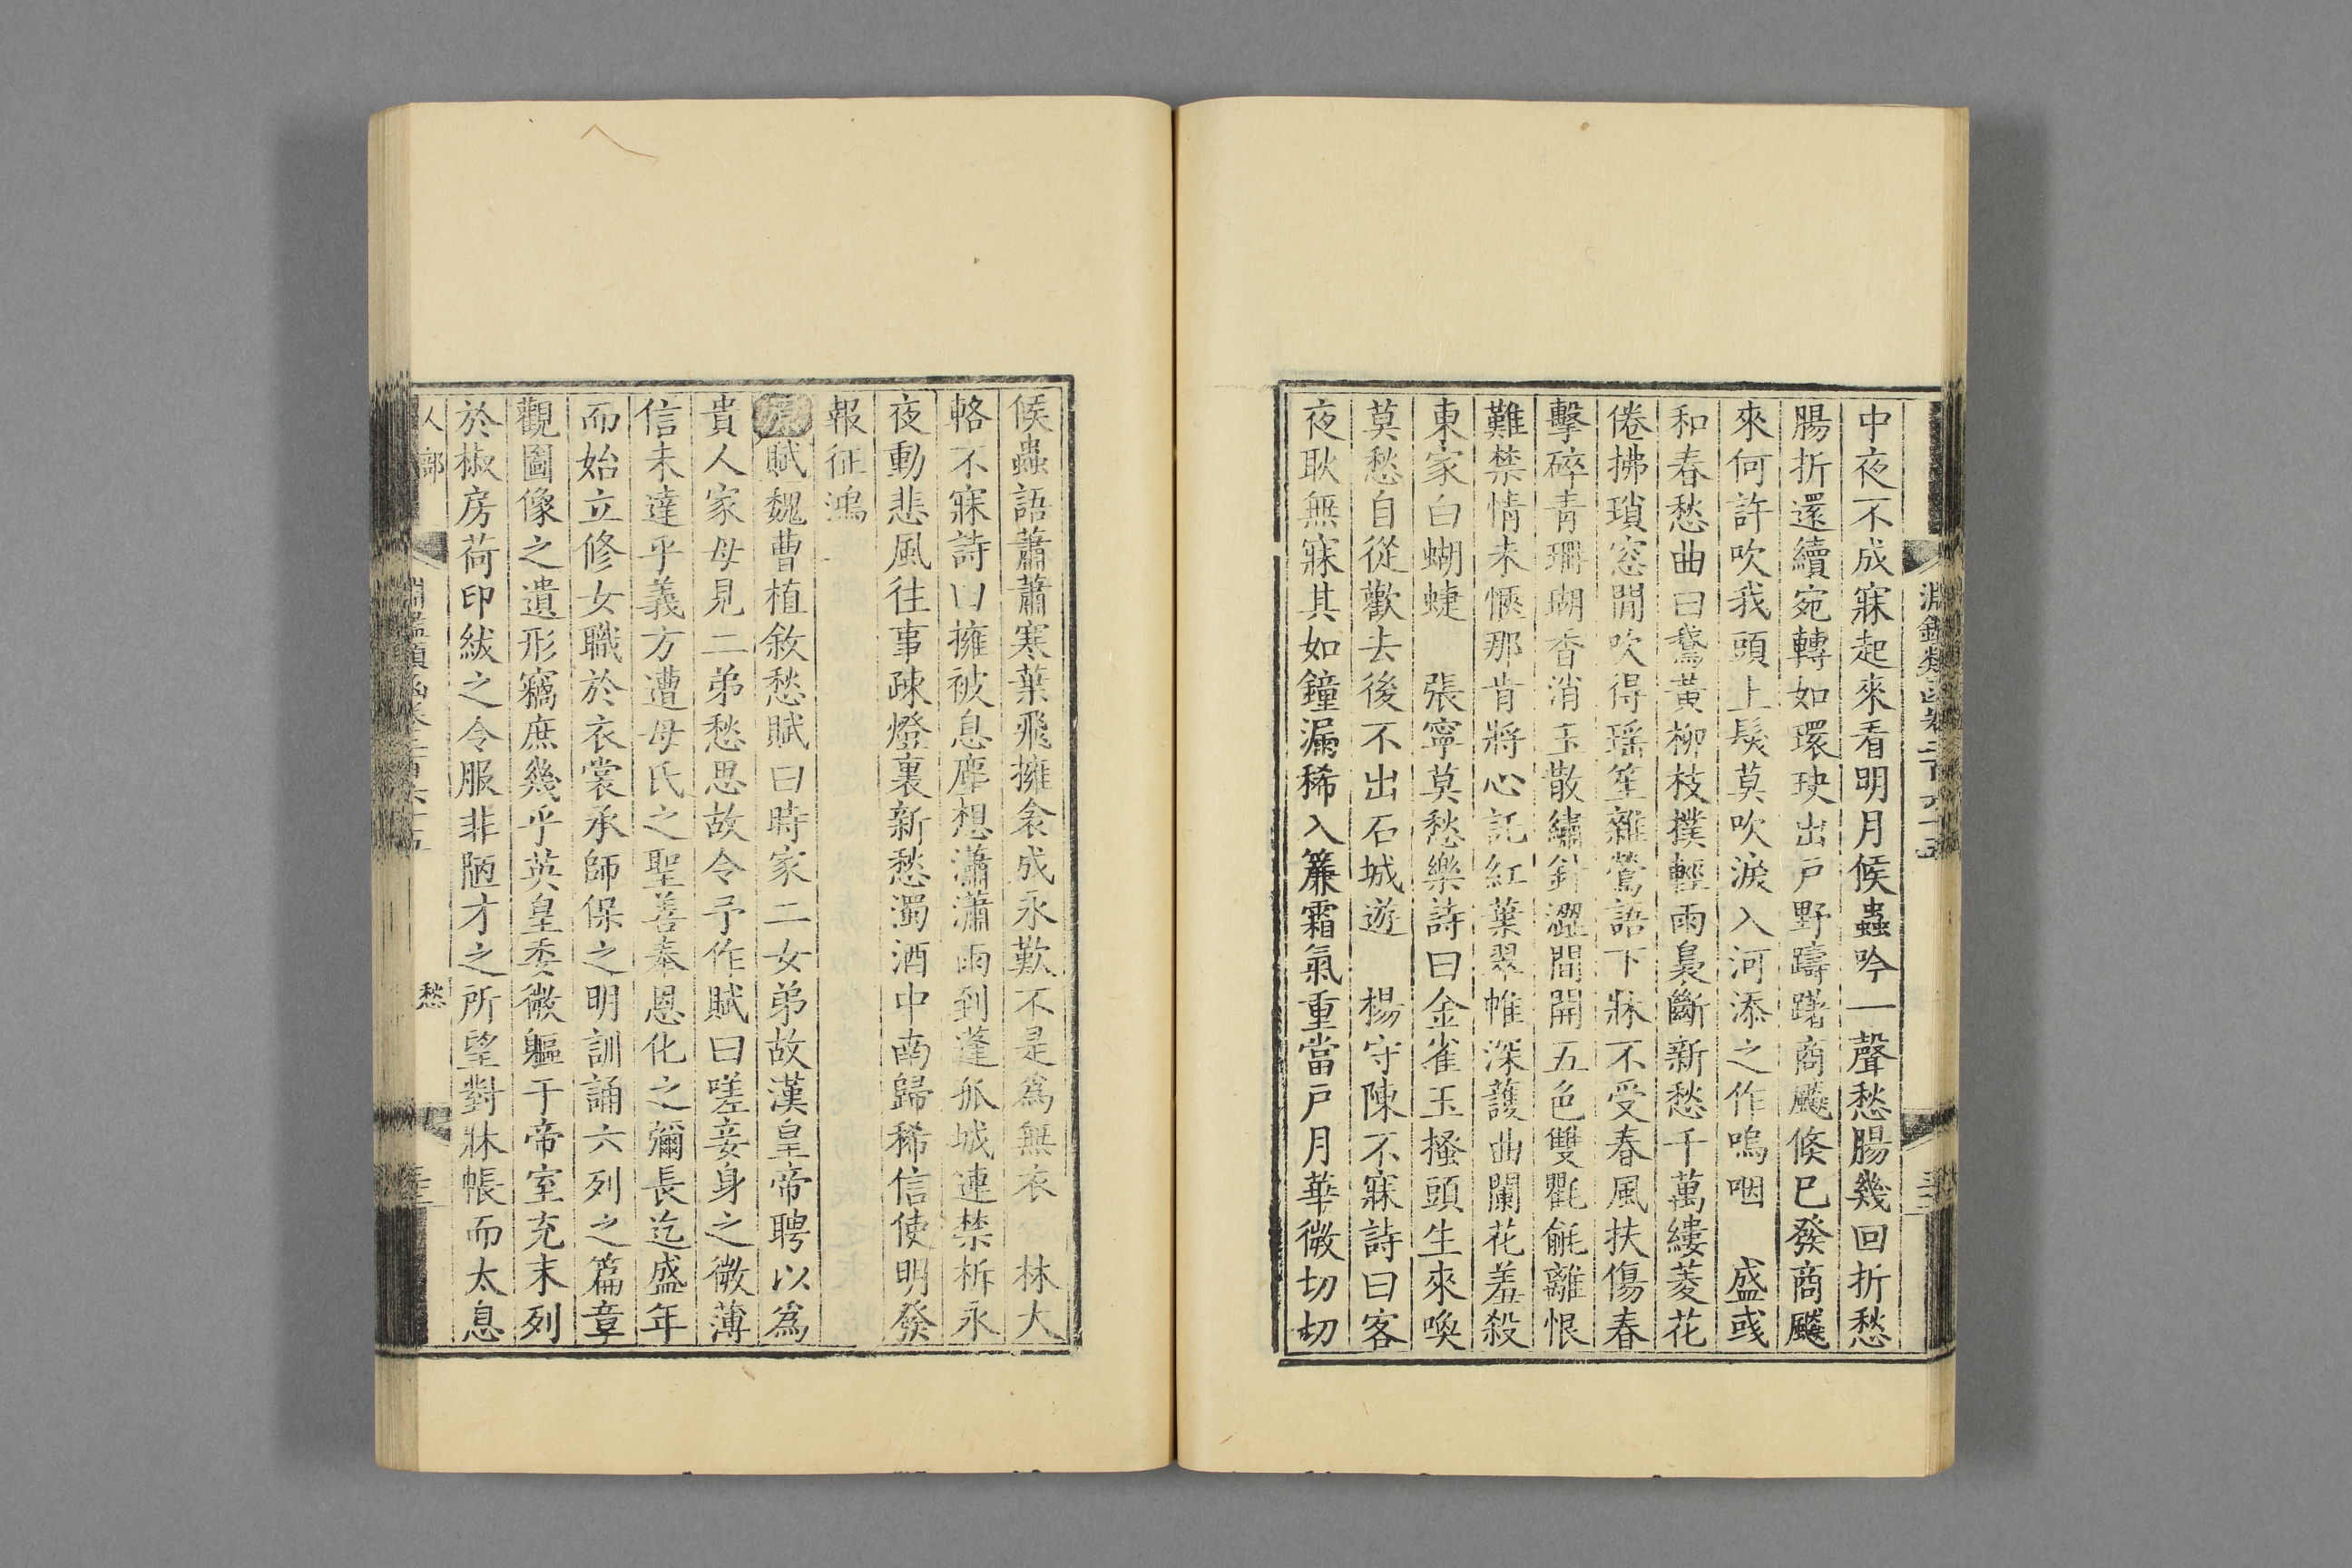 中夜不成寐起來看明月候蟲吟一聲愁腸幾回折愁
腸折還續宛轉如環玦出戶野躊躇商飈倐已發商飈
來何許吹我頭上髮莫吹淚入河添之作嗚咽　盛彧
和春愁曲曰鶖黃柳枝撲輕雨裊斷新愁千萬縷菱花
倦拂瑣窓閒吹得瑶笙雜鶯語下牀不受春風扶傷春
擊碎青珊瑚香消玉散繡針澀間開五色雙氍毹離恨
難禁情未愜那肯將心託紅葉翠帷深護曲闌花羞殺
東家白蝴蜨　張寧莫愁樂詩曰金雀玉搔頭生來喚
莫愁自從歡去後不出石城遊　楊守陳不寐詩曰客
夜耿無寐其如鐘漏稀入簾霜氣重當戶月華微切切
候蟲語蕭蕭寒葉飛擁衾成永歎不是爲無衣　林大
輅不寐詩曰擁被息塵想瀟瀟雨到蓬孤城連禁柝永
夜動悲風往事疎燈裏新愁濁酒中南歸稀信使明發
報征鴻
原賦魏曹植敘愁賦曰時家二女弟故漢皇帝聘以爲
貴人家母見二弟愁思故令予作賦曰嗟妾身之微薄
信未達乎義方遭母氏之聖善奉恩化之彌長迄盛年
而始立修女職於衣裳承師保之明訓誦六列之篇章
觀圖像之遺形竊庶幾乎英皇委微軀于帝室充末列
於椒房荷印紱之令服非陋才之所望對牀帳而太息
人部
愁